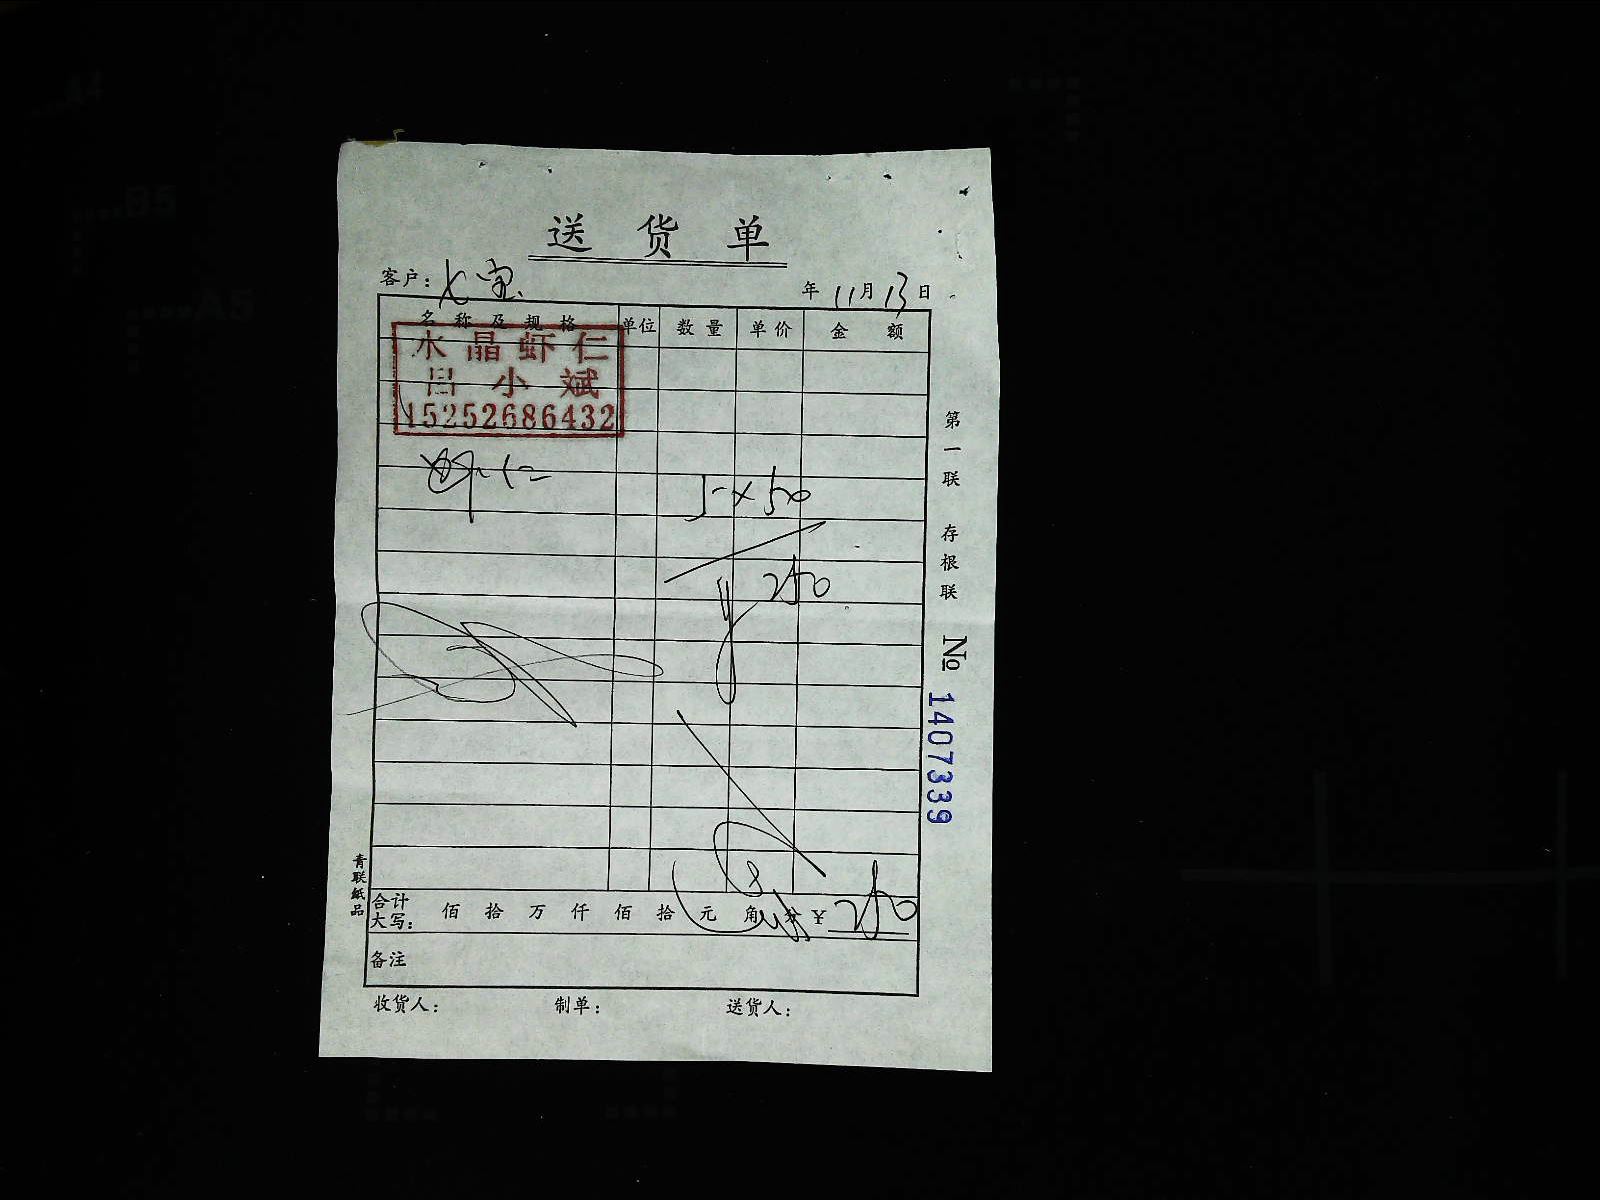 送货单
客户：七宝 年11月13日
名称及规格 单位 数量 单价 金额
水晶虾仁
吕小斌
15252686432
虾仁 5×50
¥250
合计大写： 佰拾万仟佰拾元角分 ¥250
备注
收货人： 制单： 送货人：
第一联 存根联
№ 1407339
青联纸品
A4
B5
A5